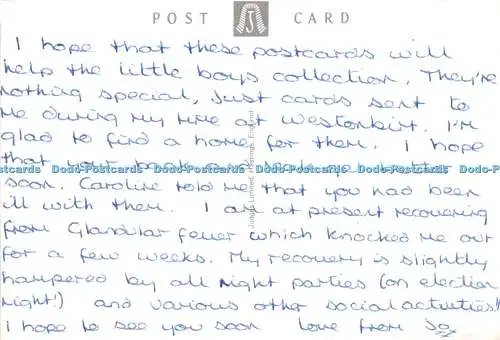 POST CARD
I hope that these postcards will
help the little boys collection. They're
nothing special, just cards sent to
me during my time at Westonbirt. I'm
glad to find a home for them. I hope
that your back
Dodo-Postcards Dodo-Postcards Dodo-Postcards Dodo-Postcards Dodo-Postcards
soon. Caroline told me that you had been
ill with them. I am at present recovering
from Glandular fever which knocked me out
for a few weeks. My recovery is slightly
hampered by all night parties (on election
night!) and various other social activities!!
I hope to see you soon Love from Jo